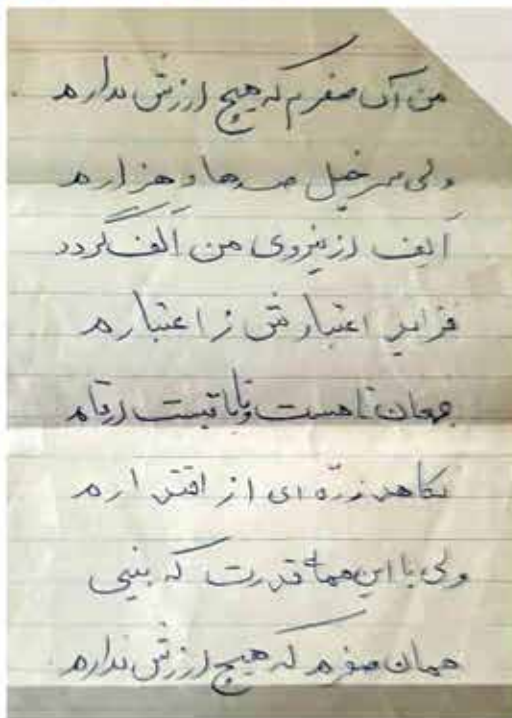 من آن صفرم که هیچ ارزش ندارم
ولی سرخیل صدها و هزارم
اَلِف از نیروی من اَلف گردد
فزاید اعتبارش ز اعتبارم
جهان تا هست و تا باقیست ارقام
نکاهد ذرّه ای از اقتدارم
ولی با این همه قدرت که بینی
همان صفرم که هیچ ارزش ندارم